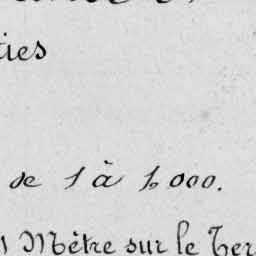 ies
de 1 à 1,000.
1 Mètre sur le Ter